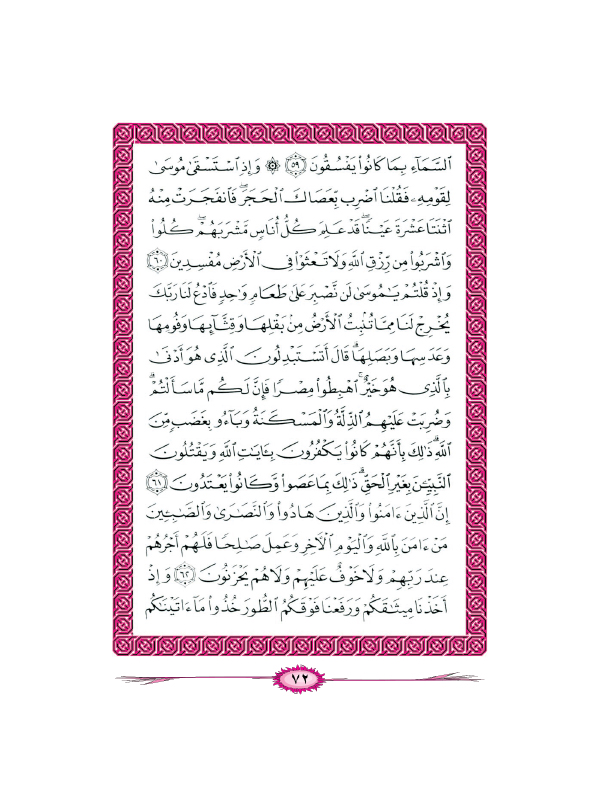 ٱلسَّمَآءِ بِمَا كَانُوا۟ يَفْسُقُونَ ۝٥٩ ۞ وَإِذِ ٱسْتَسْقَىٰ مُوسَىٰ
لِقَوْمِهِۦ فَقُلْنَا ٱضْرِب بِّعَصَاكَ ٱلْحَجَرَ ۖ فَٱنفَجَرَتْ مِنْهُ
ٱثْنَتَا عَشْرَةَ عَيْنًا ۖ قَدْ عَلِمَ كُلُّ أُنَاسٍ مَّشْرَبَهُمْ ۖ كُلُوا۟
وَٱشْرَبُوا۟ مِن رِّزْقِ ٱللَّهِ وَلَا تَعْثَوْا۟ فِى ٱلْأَرْضِ مُفْسِدِينَ ۝٦٠
وَإِذْ قُلْتُمْ يَـٰمُوسَىٰ لَن نَّصْبِرَ عَلَىٰ طَعَامٍ وَٰحِدٍ فَٱدْعُ لَنَا رَبَّكَ
يُخْرِجْ لَنَا مِمَّا تُنۢبِتُ ٱلْأَرْضُ مِنۢ بَقْلِهَا وَقِثَّآئِهَا وَفُومِهَا
وَعَدَسِهَا وَبَصَلِهَا ۖ قَالَ أَتَسْتَبْدِلُونَ ٱلَّذِى هُوَ أَدْنَىٰ
بِٱلَّذِى هُوَ خَيْرٌ ۚ ٱهْبِطُوا۟ مِصْرًا فَإِنَّ لَكُم مَّا سَأَلْتُمْ ۗ
وَضُرِبَتْ عَلَيْهِمُ ٱلذِّلَّةُ وَٱلْمَسْكَنَةُ وَبَآءُو بِغَضَبٍ مِّنَ
ٱللَّهِ ۗ ذَٰلِكَ بِأَنَّهُمْ كَانُوا۟ يَكْفُرُونَ بِـَٔايَـٰتِ ٱللَّهِ وَيَقْتُلُونَ
ٱلنَّبِيِّـۧنَ بِغَيْرِ ٱلْحَقِّ ۗ ذَٰلِكَ بِمَا عَصَوا۟ وَّكَانُوا۟ يَعْتَدُونَ ۝٦١
إِنَّ ٱلَّذِينَ ءَامَنُوا۟ وَٱلَّذِينَ هَادُوا۟ وَٱلنَّصَـٰرَىٰ وَٱلصَّـٰبِـِٔينَ
مَنْ ءَامَنَ بِٱللَّهِ وَٱلْيَوْمِ ٱلْـَٔاخِرِ وَعَمِلَ صَـٰلِحًا فَلَهُمْ أَجْرُهُمْ
عِندَ رَبِّهِمْ وَلَا خَوْفٌ عَلَيْهِمْ وَلَا هُمْ يَحْزَنُونَ ۝٦٢ وَإِذْ
أَخَذْنَا مِيثَـٰقَكُمْ وَرَفَعْنَا فَوْقَكُمُ ٱلطُّورَ خُذُوا۟ مَآ ءَاتَيْنَـٰكُم
٧٢